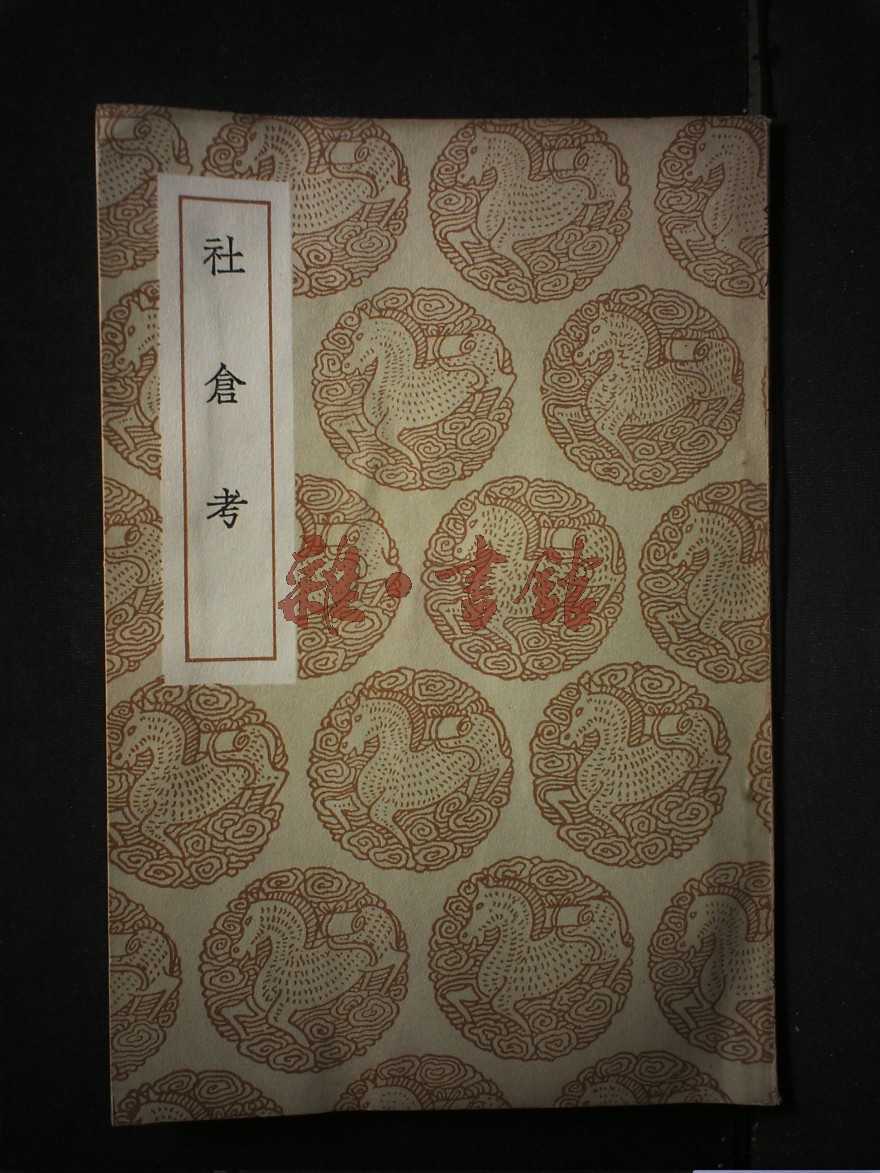 社倉考
雜·書館